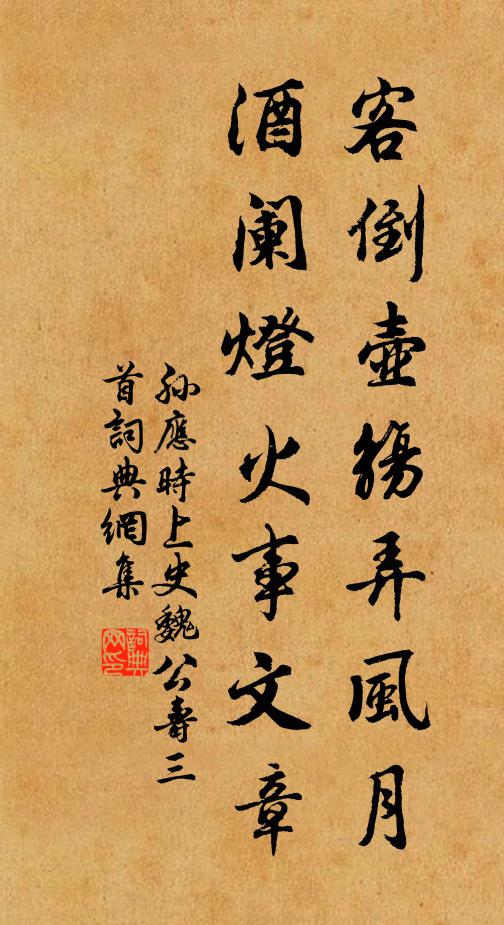 客倒壺觴弄風月
酒阑燈火事文章
孫應時上史魏公壽三
首詞典網集
詞典
网印